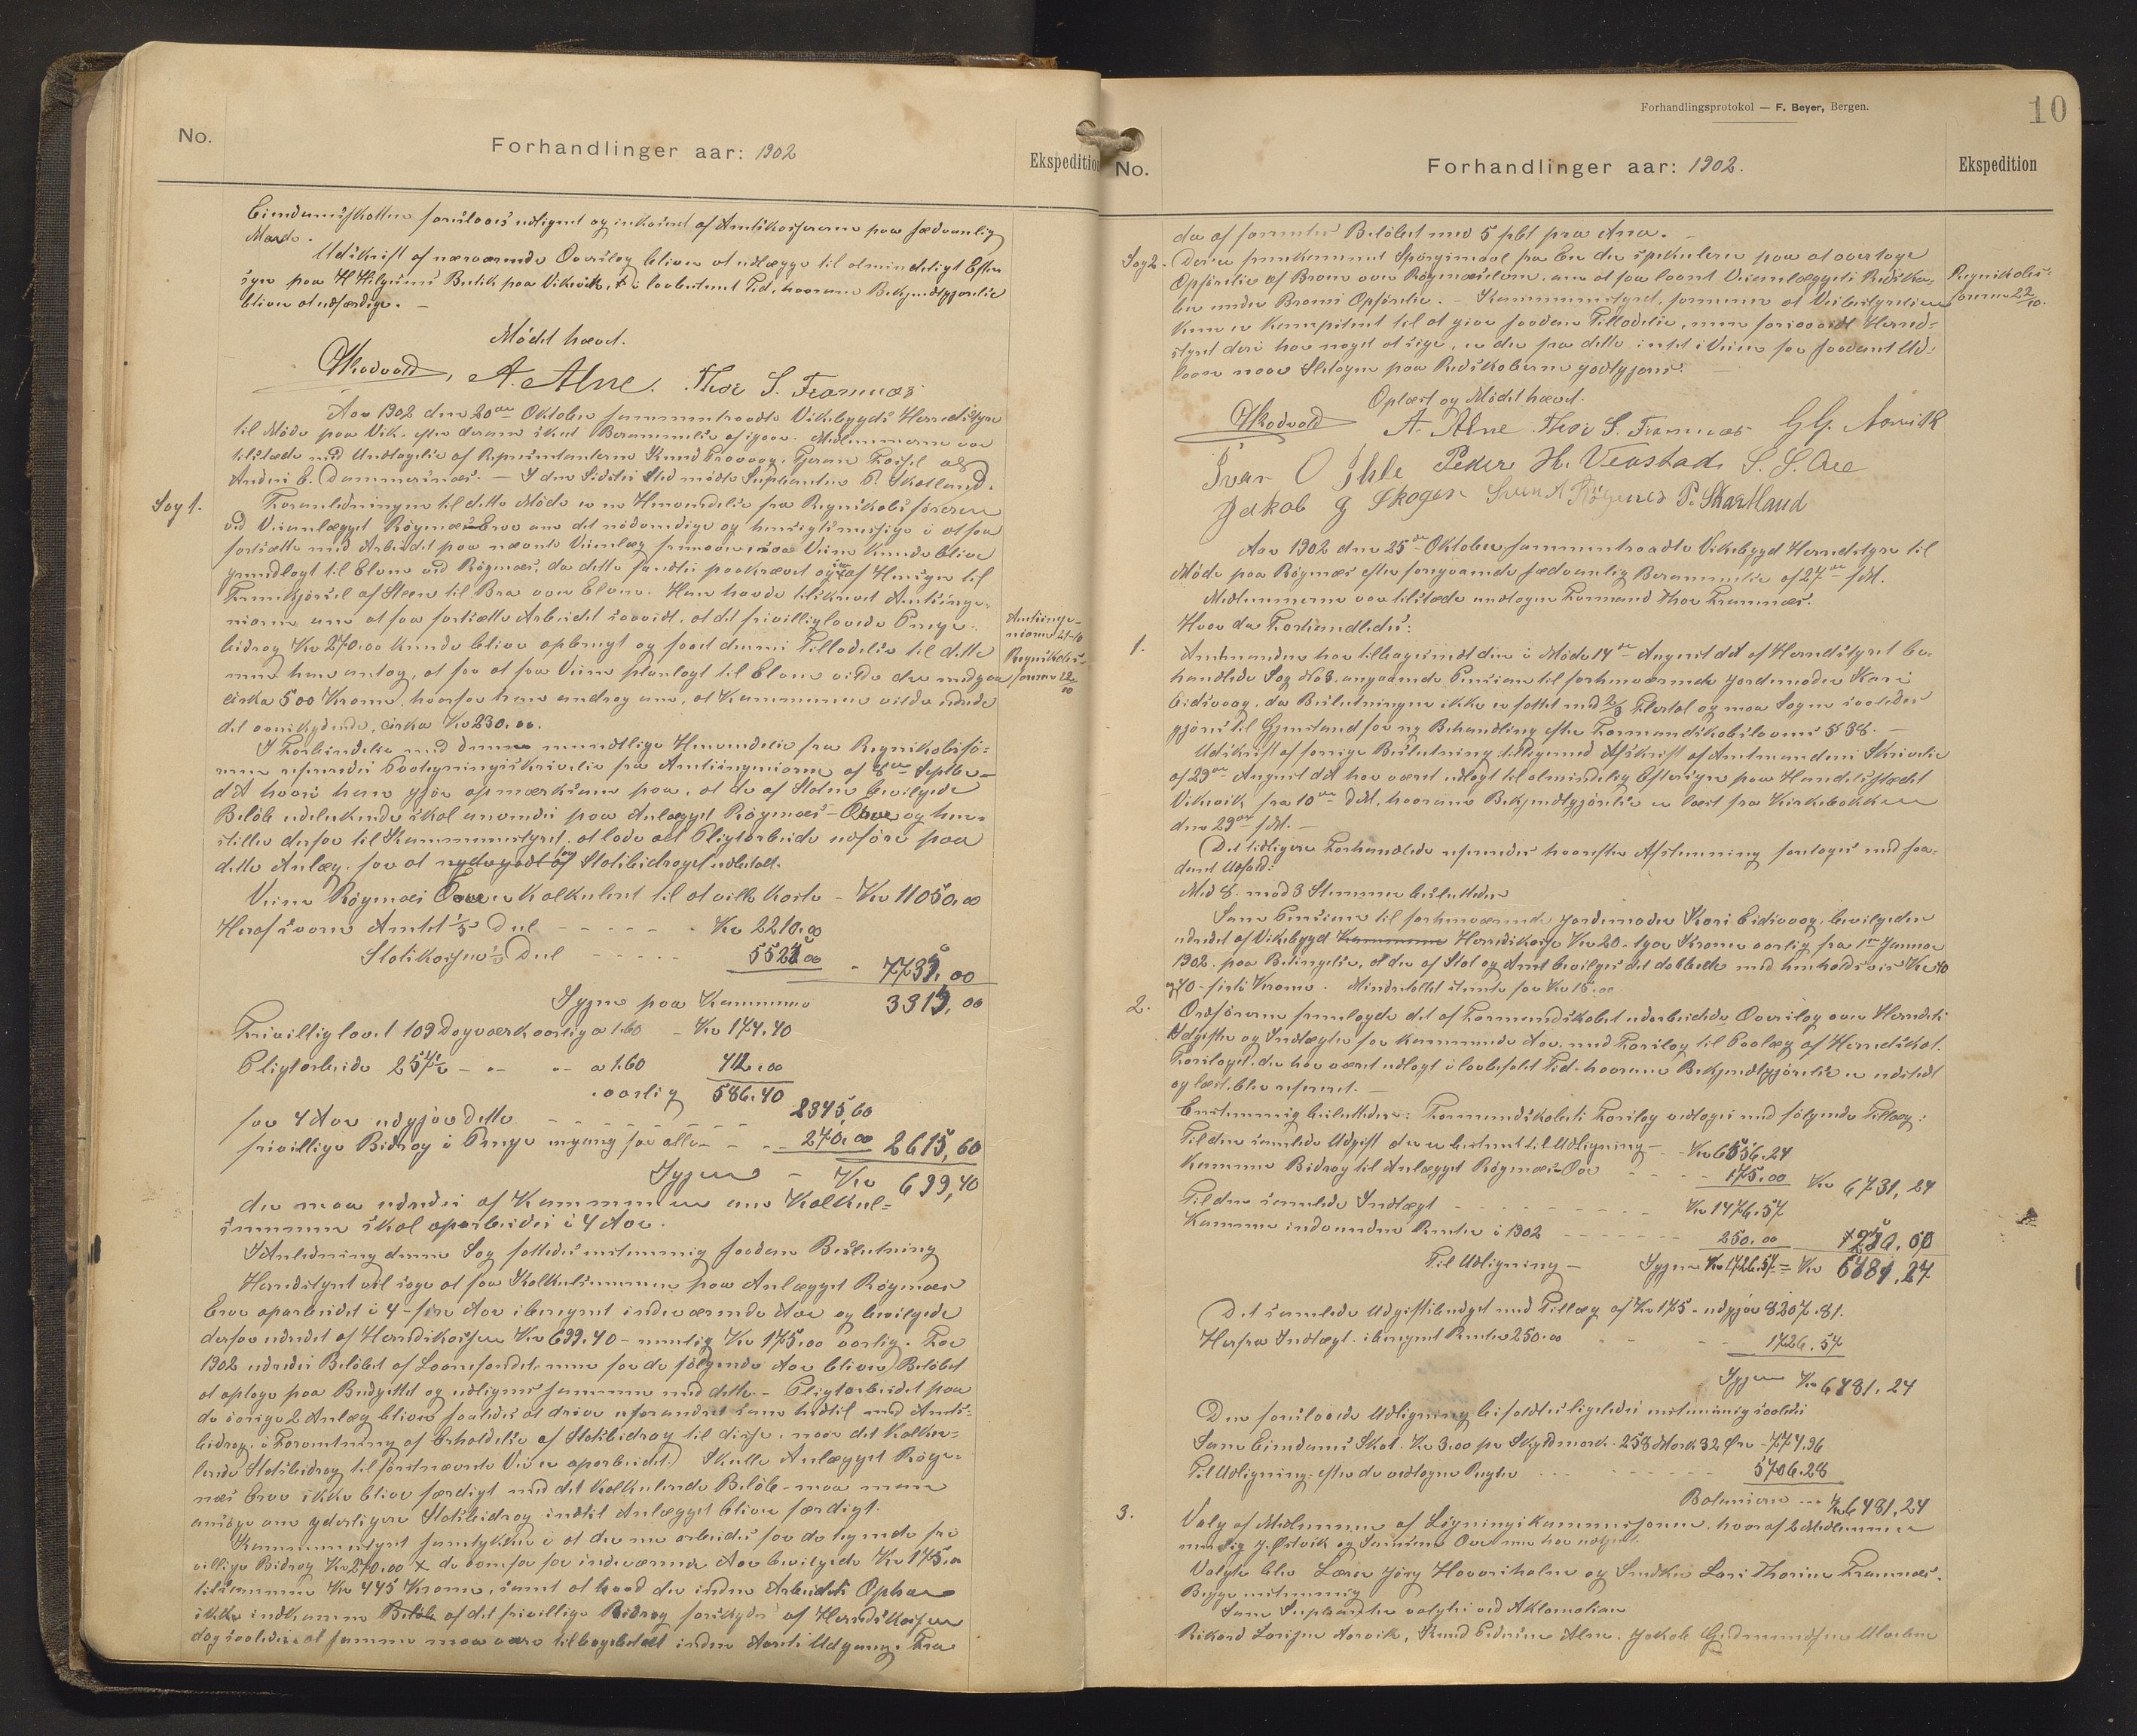 No.
Forhandlinger aar: 1902
Ekspedition
Eiendomsskatten foreslaaes udlignet og inkræved af Amtskassereren paa sædvanlig
Maade.
Udskrift af nærværende Overslag bliver at udlægge til almindeligt Efter
syn paa H Helgesens Butik paa Vikevik, i lovbestemt Tid, hvorom Bekjendtgjørelse
bliver at udfærdige. —
Mødet hævet.
A. Alne. Thor S. Framnæs
Aar 1902 den 20de Oktober sammentraadte Vikebygds Herredstyre
til Møde paa Vik, efter derom skeet Berammelse af igaar. Medlemmerne var
tilstæde med Undtagelse af Repræsentanterne Knud
Anders E. Dommersnæs. — I den Sidstes Sted mødte Suplanten P. Skotland.
Sag 1.
Foranledningen til dette Møde er en Henvendelse fra Regnskabsføreren
ved Veianlægget Røgnæs Ervo om det nødvendige og hensigtsmæssige i at faa
fortsætte med Arbeidet paa nævnte Veianlæg fremover, saa Veien kunde blive
grundlagt til Elven ved Røgnæs, da dette saaledes paakræved og af Hensyn til
Fremkjørsel af Sten til Bro over Elven. Han havde tilskrevet Amtsinge-
niøren om at faa fortsætte Arbeidet saavidt, at det frivilliglovede Penge-
bidrag Kr 270.00 kunde blive opbrugt og faaet dennes Tilladelse til dette
men han antog, at for at faa Veien planlagt til Elven vilde der medgaa
cirka 500 Kroner, hvorfor han androg om, at Kommunen vilde udrede
det overskydende, cirka Kr 230.00.
Amtsinge-
niøren 21-10
Regnskabs-
føreren 22/10
I Forbindelse med denne mundtlige Henvendelse fra Regnskabsfø-
reren refereredes Paategningsskrivelse fra Amtsingeniøren af 8de Septbr
d A hvori han gjør opmærksom paa, at de af Staten bevilgede
Beløb udelukkende skal anvendes paa Anlægget Røgnæs – Ovve og hen-
stiller derfor til Kommunestyret, at lade alt Pligtarbeide udføre paa
dette Anlæg, for at Statsbidraget udbetalt.
Veien Røgnæs Ovve er kalkuleret til at ville koste – Kr 11050.00
Heraf svarer Amtet 1/5 Del - - - - - - Kr 2210.00
Statskassen 1/2 Del - - - - - 5525.00 - 7735.00
Igjen paa Kommunen 3315,00
Frivillig lovet 109 Dagværk aarlig a 1.60 - Kr 174.40
Pligtarbeide 257½ - - - a 1.60 412.00
aarlig 586.40
for 4 Aar udgjør dette - - - - - - 2345,60
frivillige Bidrag i Penge engang for alle - - - 270.00 2615,60
Igjen - Kr 699,40
der maa udredes af Kommunen om Kalkul-
summen skal oparbeides i 4 Aar.
I Anledning denne Sag fattedes enstemmig saadan Beslutning
Herredstyret vil søge at faa Kalkulsummen paa Anlægget Røgnæs
Ervo oparbeidet i 4 – fire Aar iberegnet indeværende Aar og bevilgede
derfor udredet af Herredskassen Kr 699.40 – nemlig Kr 175.00 aarlig. For
1902 udredes Beløbet af Laanefondet, men for de følgende Aar bliver Beløbet
at optage paa Budgettet og udlignes sammen med dette. – Pligtarbeidet paa
de øvrige 2 Anlæg bliver saaledes at drive uforandret som hidtil med Amts-
bidrag, i Forventning af Erholdelse af Statsbidrag til disse, naar det kalku-
lerede Statsbidrag til førstnævnte Vei er oparbeidet. Skulle Anlægget Røg-
næs Ervo ikke blive færdigt med det kalkulerede Beløb – maa man
ansøge om yderligere Statsbidrag indtil Anlægget bliver færdigt.
Kommunestyret samtykker i at der nu arbeides for de tegnede fri
villige Bidrag Kr 270.00 + de ovenfor for indeværende Aar bevilgede Kr 175.00
tilsammen Kr 445 Kroner, samt at hvad der inden Arbeidets Ophør
ikke indkommer af det frivillige Bidrag forskyds af Herredskassen
dog saaledes at samme maa være tilbagebetalt inden Aarets Udgang. Fra
Forhandlingsprotokol — F. Beyer, Bergen.
10
No.
Forhandlinger aar: 1902.
Ekspedition
da af forrentes Beløbet med 5 pCt pro Anno. —
Sag 2.
Derer fremkommet Spørgsmaal fra En der spekulerer paa at overtage
Opførelse af Broen over Røgnæselven, om at faa laant Veianlæggets Redska-
ber under Broens Opførelse. – Kommunestyret, formener at Veibestyrelsen
kun er kompetent til at give saadan Tilladelse, men forsaavidt Herred-
styret deri har noget at sige, er der fra dette intet i Veien for saadant Ud-
laan naar Slitagen paa Redskaberne godtgjøres.
Regnskabs-
føreren 22/10.
Oplæst og Mødet hævet.
A. Alne Thor S. Framnæs G G. Norvik
Ivar O Ihle Peder H. Venstad S. S. Ore
Jakob G Skogen P. Skartland
Aar 1902 den 25de Oktober sammentraadte Vikebygd Herredstyre til
Møde paa Røgnæs efter foregaaende sædvanlig Berammelse af 27de f.M.
Medlemmerne var tilstæde undtagen Formand Thor Framnæs.
Hvor da Forhandledes:
1.
Amtmanden har tilbagesendt den i Møde 14de August d A af Herredstyret be-
handlede Sag No 8. angaaende Pension til forhenværende Jordemoder Kari
Eidsvaag, da Beslutningen ikke er fattet med 2/3 Flertal og maa Sagen saaledes
gjøres til Gjenstand for ny Behandling efter Formandskabslovens § 38. —
Udskrift af forrige Beslutning tilligemed Afskrift af Amtmandens Skrivelse
af 29de August d A har været udlagt til almindelig Eftersyn paa Handelsstedet
Vikevik fra 10de d.M, hvorom Bekjendtgjørelse er læst fra Kirkebakken
den 29de f.M. —
Det tidligere Forhandlede refereredes hvorefter Afstemning foretoges med saa-
dant Udfald:
Med 8. mod 3 Stemmer besluttedes
Som Pension til forhenværende Jordemoder Kari Eidsvaag, bevilgedes
udredet af Vikebygd Kommune Herredskasse Kr 20 - tyve Kroner aarlig fra 1ste Januar
1902. paa Betingelse, at der af Stat og Amt bevilges det dobbelte med henholdsvis Kr 40
og 40 – firti Kroner. Mindretallet stemte for Kr 15.00
2.
Ordføreren fremlagde det af Formandskabet udarbeidede Overslag over Herredets
Udgifter og Indtægter for kommende Aar, med Forslag til Paalæg af Herredskat.
Forslaget, der har været udlagt i lovbefalet Tid, hvorom Bekjendtgjørelse er udstedt
og læst, blev refereret. —
Enstemmig besluttedes: Formandskabets Forslag vedtages med følgende Tillæg:
Til den samlede Udgift der er bestemt til Udligning – - Kr 6556.24
Kommer Bidrag til Anlægget Røgnæs-Ovve - - - 175.00 Kr 6731,24
Til den samlede Indtægt - - - - - - Kr 1476.57
Kommer indvundne Renter i 1902 - - - - - 250.00 250.00
Til Udligning – Igjen Kr 1726.57 = Kr 6481,24
Det samlede Udgiftsbudget med Tillæg af Kr 175 - udgjør 8207.81.
Herfra Indtægt iberegnet Renter 250.00 - - 1726.57
Igjen Kr 6481.24
Den foreslaaede Udligning bifaldtes ligeledes enstemmig saaledes
Som Eiendoms Skat. Kr 3.00 pr Skyldmark. 258 Mark 32 Øre - 774.96
Til Udligning efter de vedtagne Regler - - - 5706.28
Balancerer --- Kr 6481,24
3.
Valg af Medlemmer af Ligningskommissionen, hvoraf 2 Medlemmer
nemlig J. Østvik og Ovve nu har udtjent.
Valgte blev Lærer Jørg Havorsholm og Smeden Lars Thorsen Framnæs.
Begge enstemmig
Som Suppleanter valgtes ved Aklamation
Rikard Larsen Norvik, Knud Pedersen Alne, Jakob Gudmundsen Ulveben